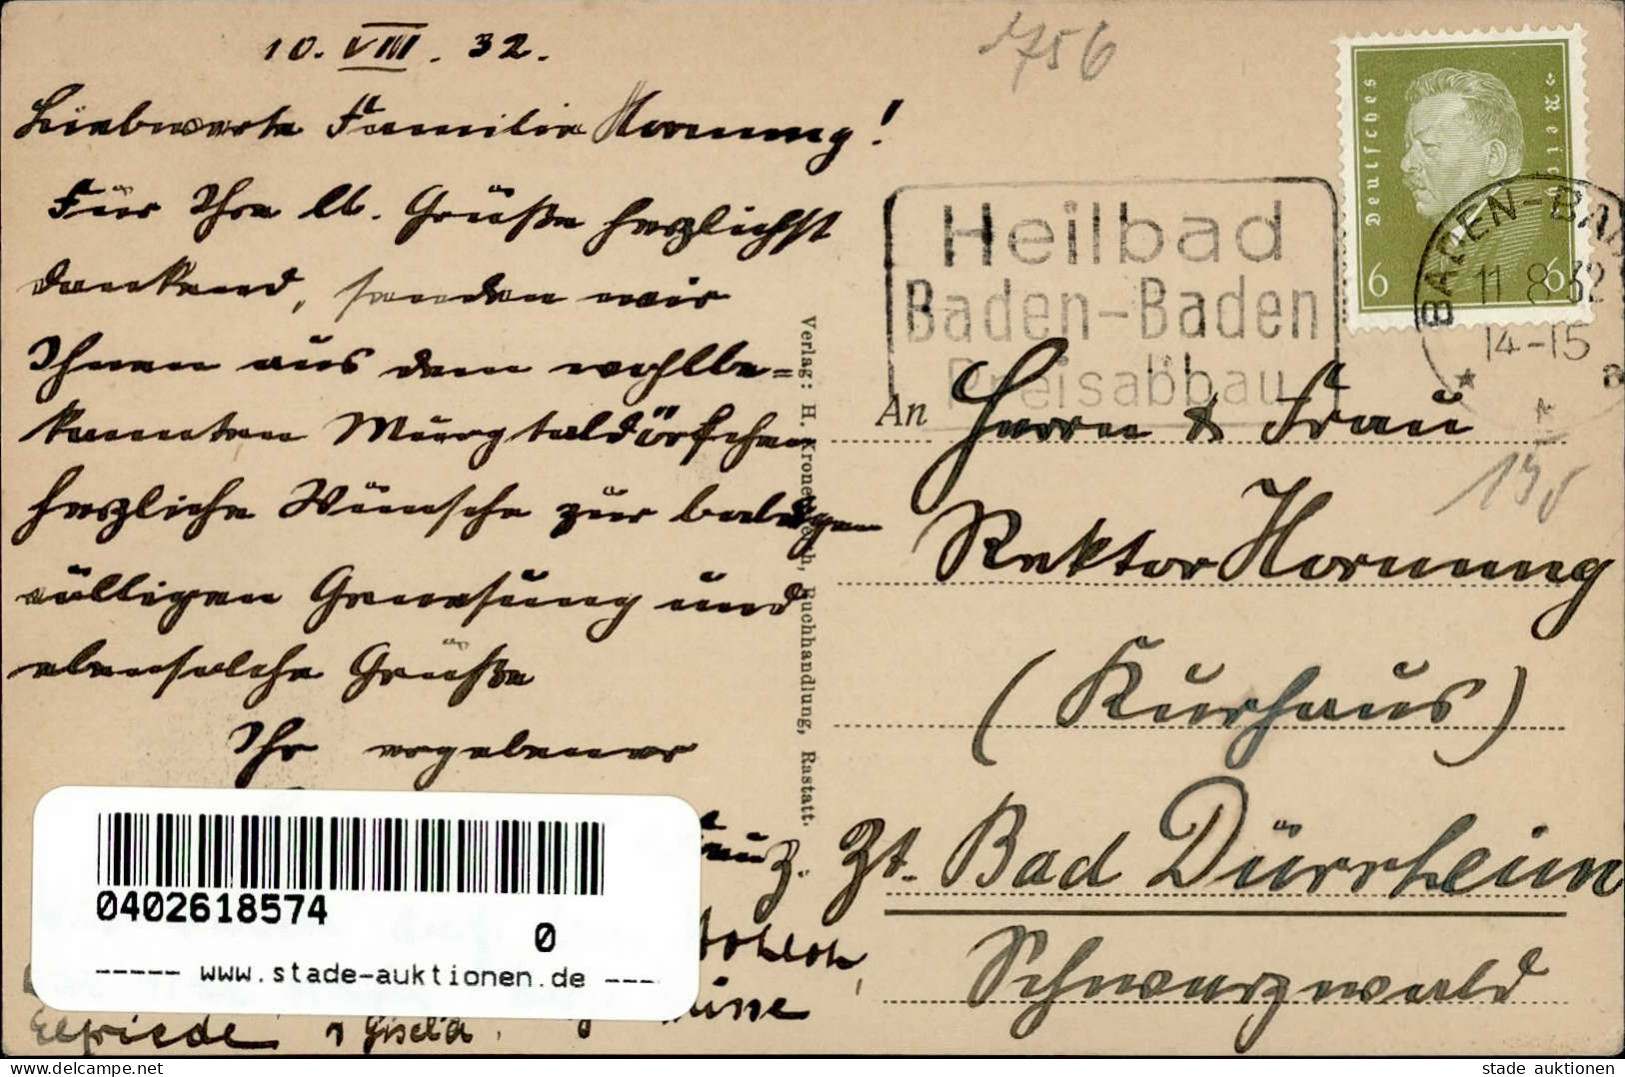 10. VIII. 32.
Liebwerte Familie Hornung!
Für Ihre lb. Grüße herzlichst
dankend, senden wir
Ihnen aus dem wohlbe=
kannten Murgtaldörfchen
herzliche Wünsche zur baldigen
völligen Genesung und
ebensolche Grüße
Ihr ergebener
Elfriede, Gisela
0402618574
0
----- www.stade-auktionen.de ---
Verlag: H. Buchhandlung, Rastatt.
1756
Heilbad
Baden-Baden
Preisabbau
Deutsches Reich
6 6
BADEN-BAD
11.8.32
14-15
a
An Herrn & Frau
Rektor Hornung
(Kurhaus)
Zt. Bad Dürrheim
Schwarzwald
stade auktionen